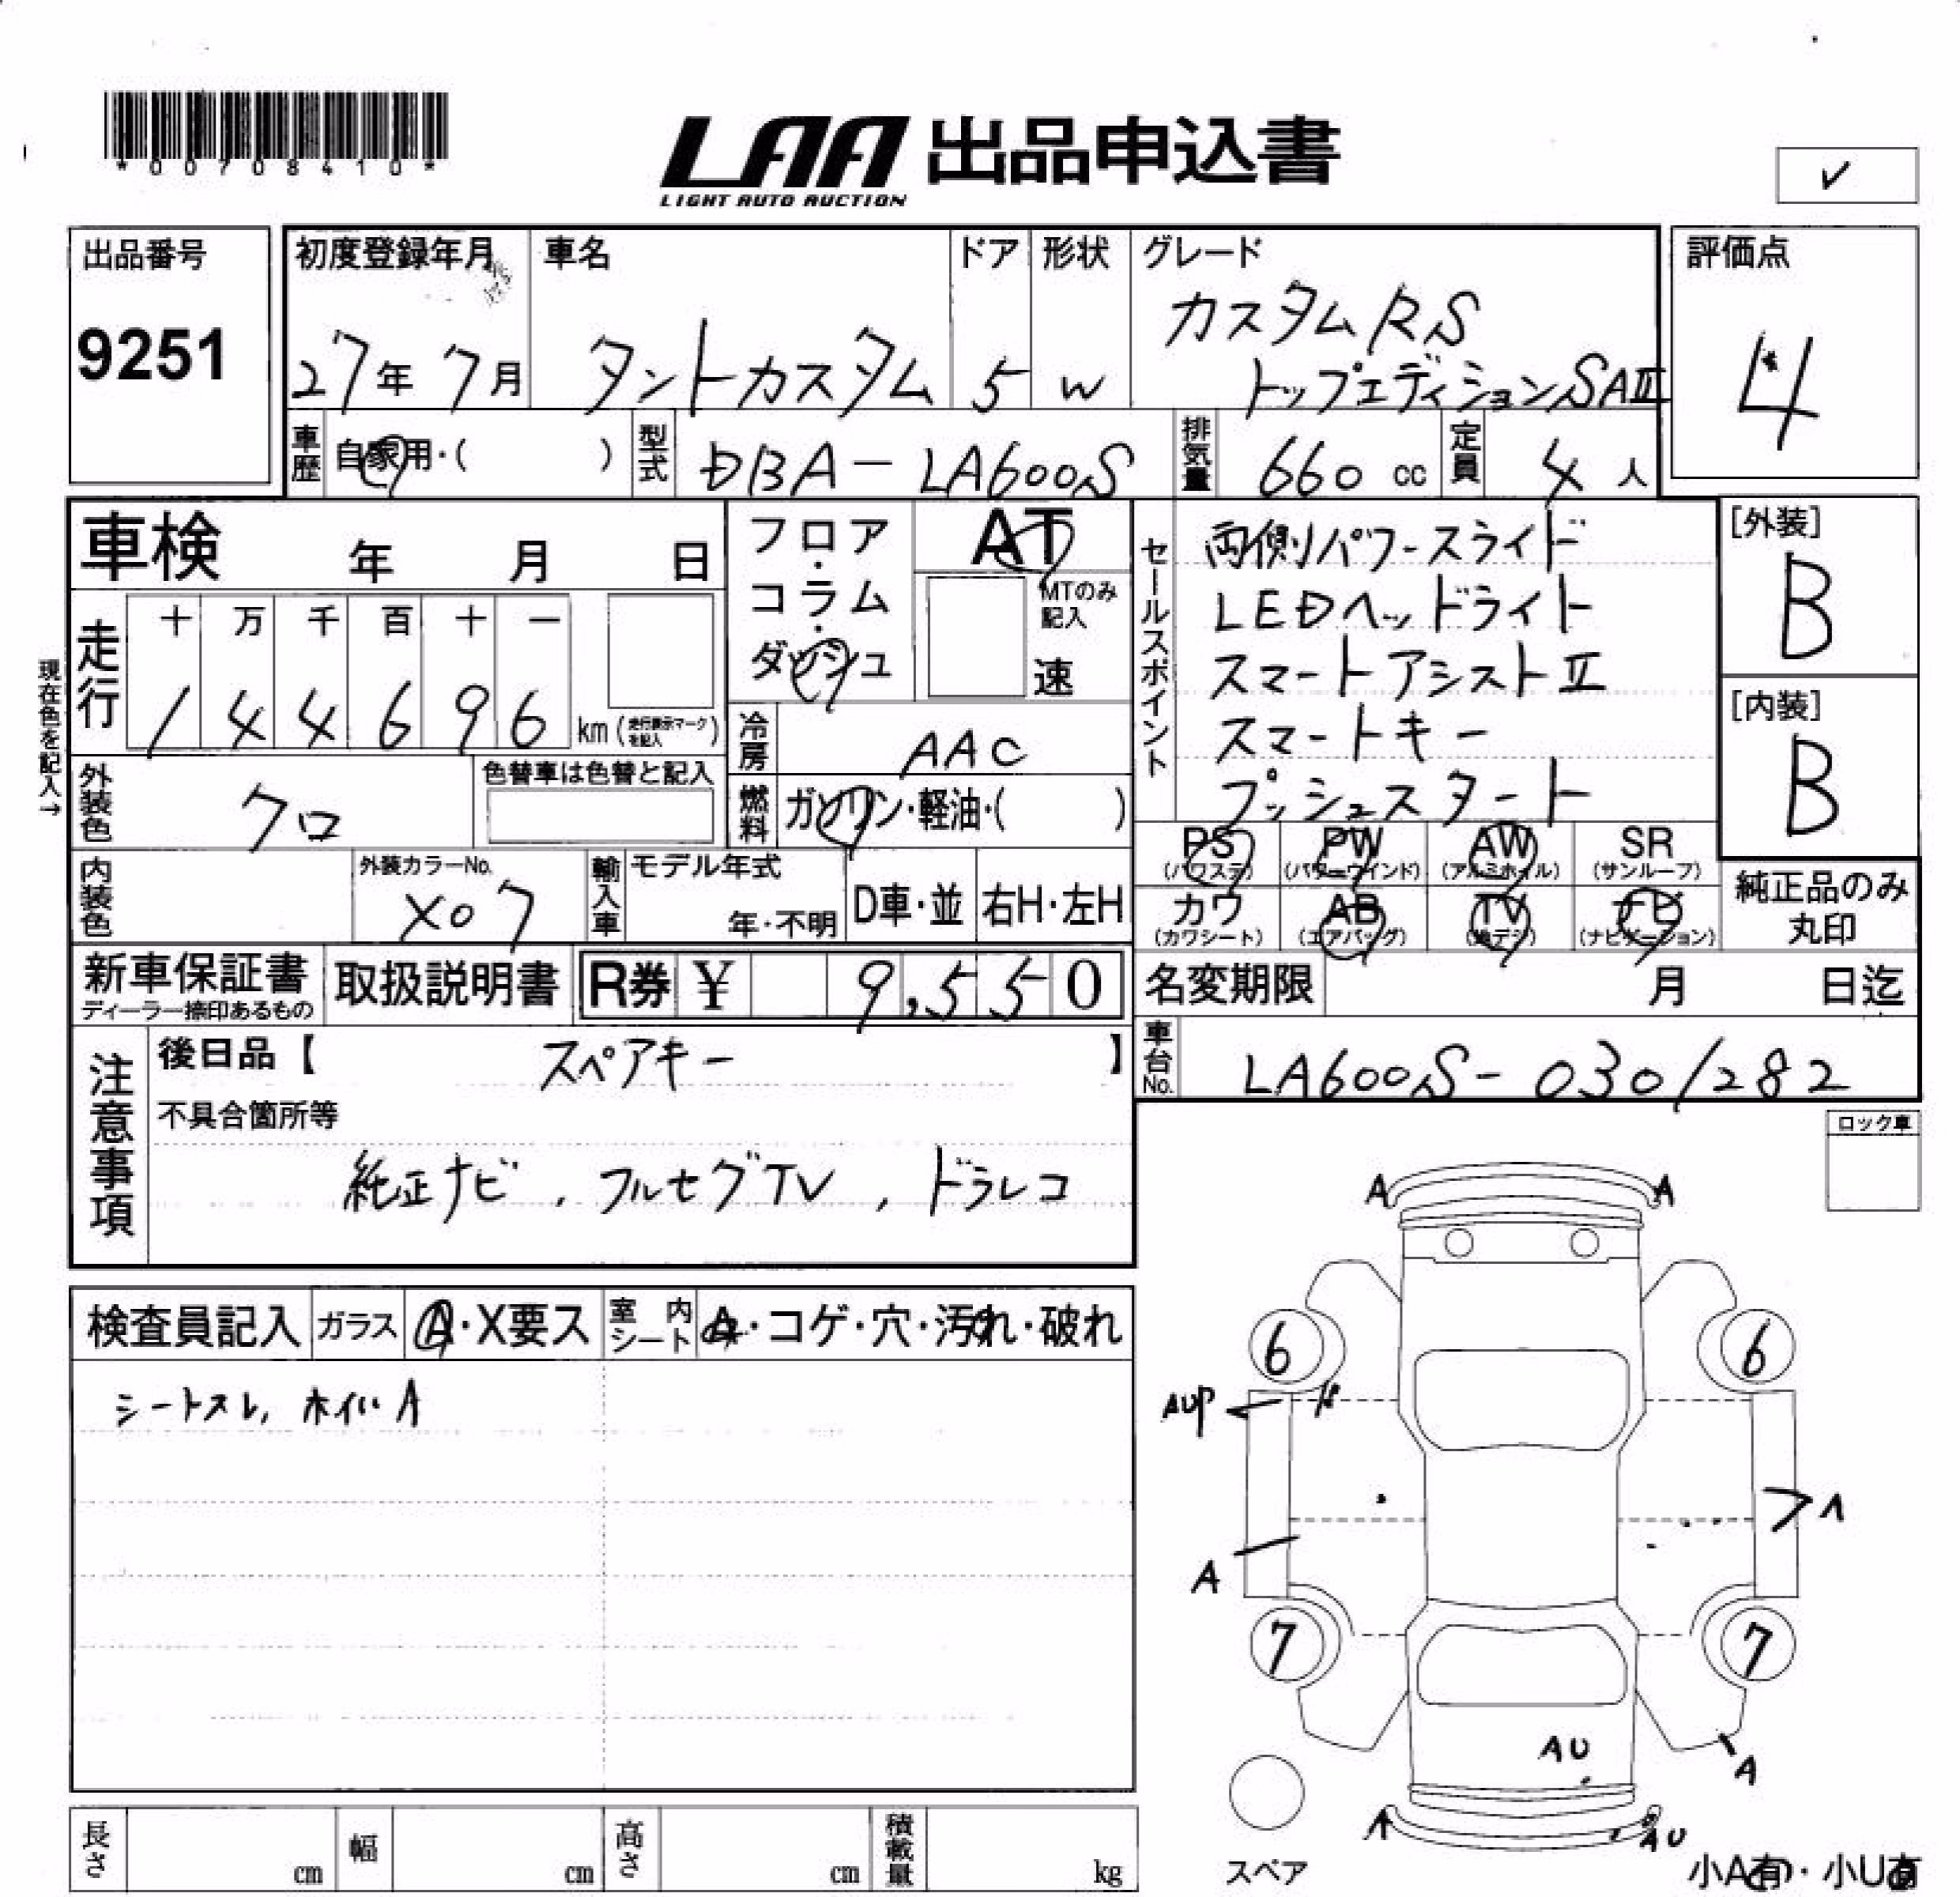 *00708410*
LAA 出品申込書
LIGHT AUTO AUCTION
✓
出品番号
9251
初度登録年月
27年 7月
車名
タントカスタム
ドア
5
形状
W
グレード
カスタムRS
トップエディションSAⅡ
評価点
4
車歴 自家用・( )
型式 DBA-LA600S
排気量 660 cc
定員 4 人
車検 年 月 日
フロア・コラム・ダッシュ
AT
MTのみ記入
速
セールスポイント
両側パワースライド
LEDヘッドライト
スマートアシストⅡ
スマートキー
プッシュスタート
[外装]
B
[内装]
B
現在色を記入→
走行
十 万 千 百 十 一
1 4 4 6 9 6 km (走行表示マークを記入)
冷房 AAC
外装色 クロ
色替車は色替と記入
燃料 ガソリン・軽油・( )
PS (パワステ) PW (パワーウインド) AW (アルミホイル) SR (サンルーフ)
カワ (カワシート) AB (エアバッグ) TV (地デジ) ナビ (ナビゲーション)
純正品のみ丸印
内装色
外装カラーNo.
X07
輸入車
モデル年式
年・不明
D車・並
右H・左H
新車保証書
ディーラー捺印あるもの
取扱説明書
R券 ¥ 9,550
名変期限 月 日迄
車台No. LA600S-0301282
注意事項
後日品【 スペアキー 】
不具合箇所等
純正ナビ, フルセグTV, ドラレコ
ロック車
検査員記入
ガラス A・X要ス
室内シート A・コゲ・穴・汚れ・破れ
シートスレ, ホイルA
A A
6 6
AUP
A
A
7 7
AU
A
A
AU
スペア
小A有・小U有
長さ cm
幅 cm
高さ cm
積載量 kg